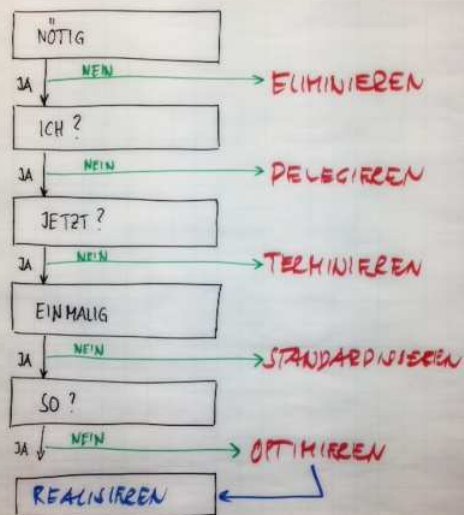 NÖTIG
JA NEIN ELIMINIEREN
ICH ?
JA NEIN DELEGIEREN
JETZT ?
JA NEIN TERMINIEREN
EINMALIG
JA NEIN STANDARDISIEREN
SO ?
JA NEIN OPTIMIEREN
REALISIEREN